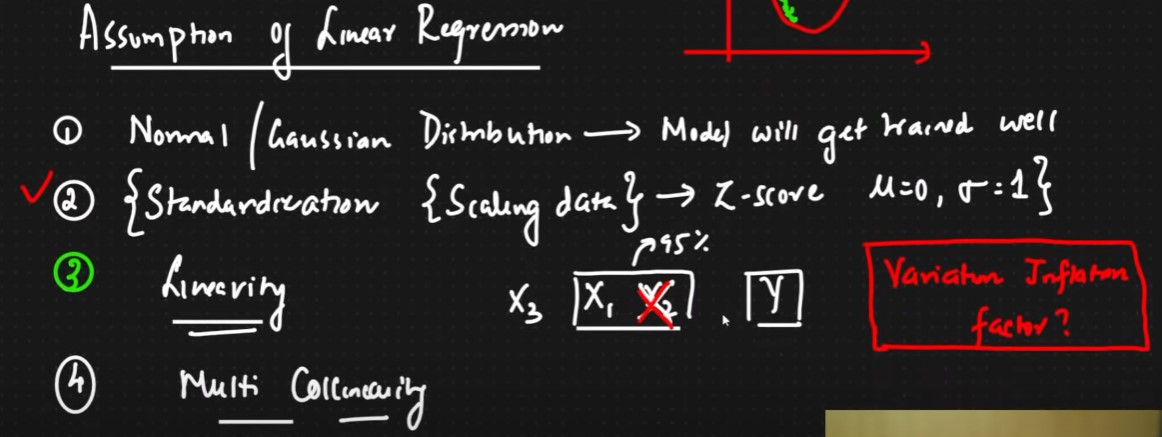 Assumption of Linear Regression
① Normal / Gaussian Distribution → Model will get trained well
② {Standardization {Scaling data} → Z-score μ=0, σ=1}
↗95%
③ Linearity X₃ X₁ X₂ Y
Variation Inflation
factor?
④ Multi Collinearity